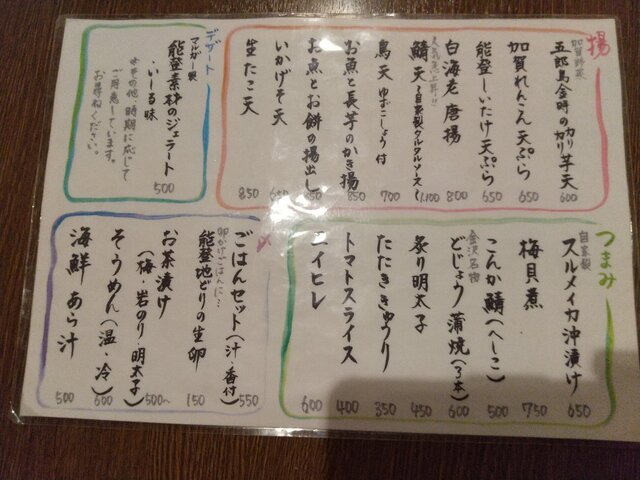 揚
加賀野菜
五郎島金時のカリカリ芋天 600
加賀れんこん天ぷら 650
能登しいたけ天ぷら 650
白海老 唐揚 800
人気急上昇!!
鯖天 〜自家製タルタルソース〜 1,100
鳥天 ゆずこしょう付 700
お魚と長芋のかき揚 850
お魚とお餅の揚出し 850
いかげそ天 650
生たこ天 850
デザート
マルガー製
能登素材のジェラート
・いしる味 500
※その他 時期に応じて
ご用意しています。
お尋ねください。
つまみ
自家製
スルメイカ沖漬け 650
梅貝煮 750
こんか鯖(へしこ) 500
金沢名物
どじょう蒲焼(3本) 600
炙り明太子 450
たたききゅうり 350
トマトスライス 400
エイヒレ 600
〆
ごはんセット(汁・香付) 550
卵かけごはんに…
能登地どりの生卵 150
お茶漬け
(梅・岩のり・明太子) 500〜
そうめん(温・冷) 600
海鮮あら汁 500